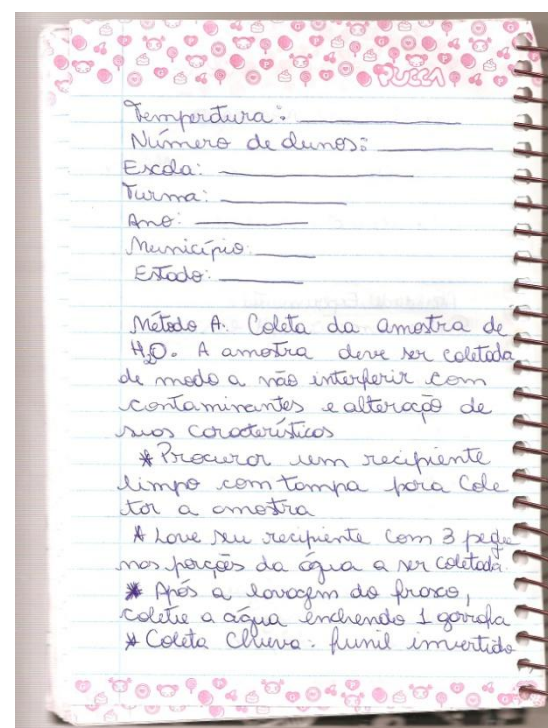 PUCCA
Temperatura: 
Número de alunos: 
Escola: 
Turma: 
Ano: 
Município: 
Estado: 
Método A: Coleta da amostra de
H₂O. A amostra deve ser coletada
de modo a não interferir com
contaminantes e alteração de
suas características
* Procurar um recipiente
limpo com tampa para Cole
tar a amostra
* Lave seu recipiente com 3 peque
nas porções da água a ser coletada.
* Após a lavagem do frasco,
coletie a água enchendo 1 garrafa
* Coleta Chuva: funil invertido